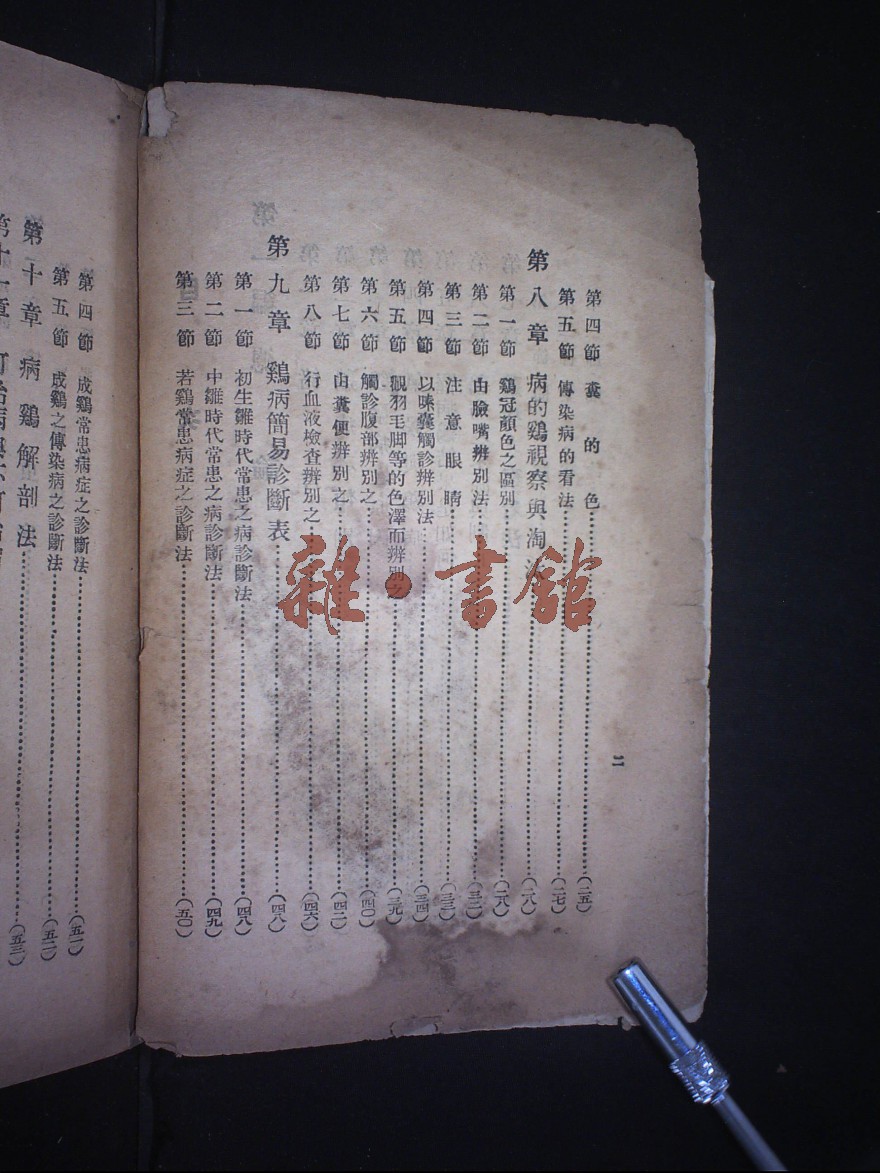 第四節 糞的色……(二五)
第五節 傳染病的看法……(二七)
第八章 病的鷄視察與淘……(二八)
第一節 鷄冠顏色之區別……(二八)
第二節 由臉嘴辨別法……(三二)
第三節 注意眼睛……(三三)
第四節 以嗉囊觸診辨別法……(三四)
第五節 觀羽毛脚等的色澤而辨別之……(三九)
第六節 觸診腹部辨別之……(四〇)
第七節 由糞便辨別之……(四二)
第八節 行血液檢查辨別之……(四六)
第九章 鷄病簡易診斷表……(四八)
第一節 初生雛時代常患之病診斷法……(四八)
第二節 中雛時代常患之病診斷法……(四九)
第三節 若鷄常患病症之診斷法……(五〇)
二
第四節 成鷄常患病症之診斷法……(五一)
第五節 成鷄之傳染病之診斷法……(五二)
第十章 病鷄解剖法……(五三)
第十一章
雜·書館